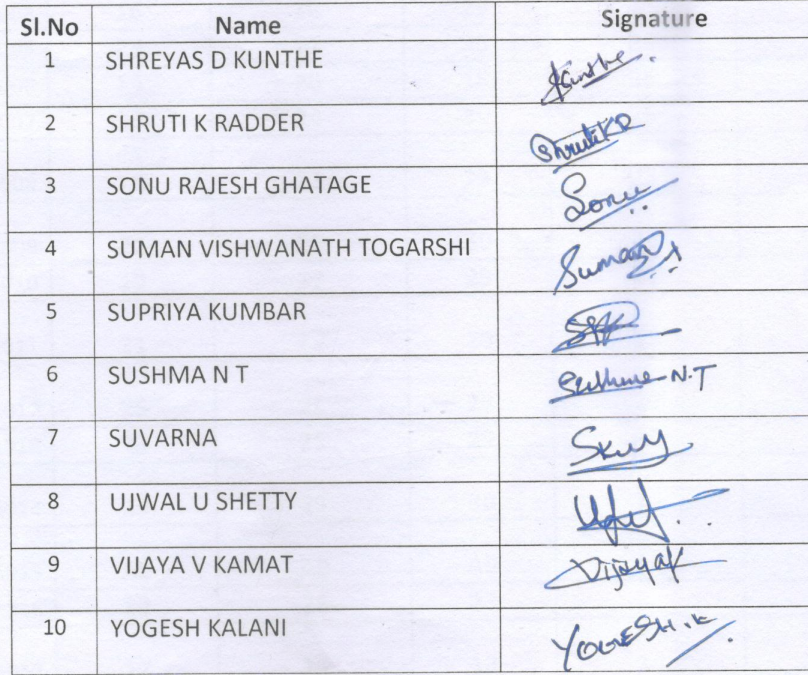 Sl.No Name Signature
1 SHREYAS D KUNTHE Kunthe.
2 SHRUTI K RADDER ShrutiKR
3 SONU RAJESH GHATAGE Sonu
4 SUMAN VISHWANATH TOGARSHI Suman
5 SUPRIYA KUMBAR
6 SUSHMA N T Sushma N.T
7 SUVARNA
8 UJWAL U SHETTY
9 VIJAYA V KAMAT VijayaK
10 YOGESH KALANI YOGESH.K